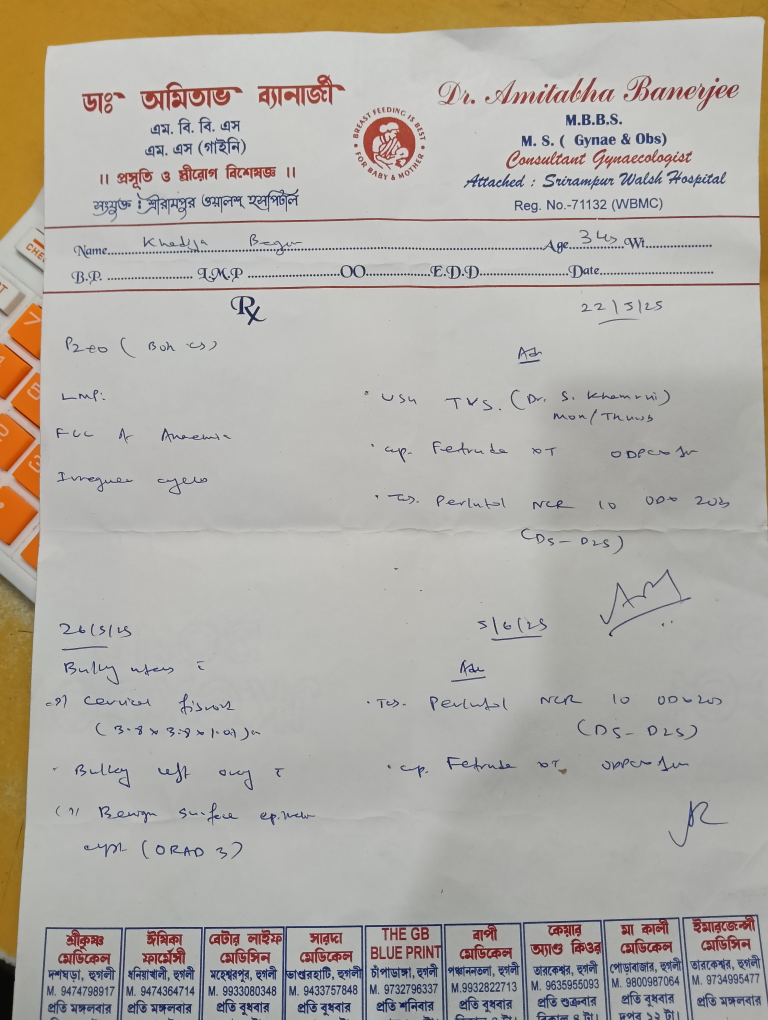 ডাঃ অমিতাভ ব্যানার্জী
এম. বি. বি. এস
এম. এস (গাইনি)
।। প্রসূতি ও স্ত্রীরোগ বিশেষজ্ঞ ।।
সংযুক্ত : শ্রীরামপুর ওয়ালশ হসপিটাল
BREAST FEEDING IS BEST
FOR BABY & MOTHER
Dr. Amitabha Banerjee
M.B.B.S.
M. S. ( Gynae & Obs)
Consultant Gynaecologist
Attached : Srirampur Walsh Hospital
Reg. No.-71132 (WBMC)
Name Khadija Begum Age 34 Wt
B.P. L.M.P OO E.D.D Date
Rx
22/5/25
P2+0 ( Both cs)
LMP:
Anaemia
Irregular cycles
Adv
USG TVS. (Dr. S.
Mon/Thurs
cap. XT
NCR 10
(D5 - D25)
26/5/25
Bulky uterus
cervical fibroid
(3.8 x 3.8 x
Bulky left ovary
Benign surface epithelial
cyst (ORAD 3)
5/6/25
Adv
NCR 10
(D5 - D25)
cap. XT
শ্রীকৃষ্ণ মেডিকেল
দশঘড়া, হুগলী
M. 9474798917
প্রতি মঙ্গলবার
ঈষিকা ফার্মেসী
ধনিয়াখালী, হুগলী
M. 9474364714
প্রতি বুধবার
বেটার লাইফ মেডিসিন
মহেশ্বরপুর, হুগলী
M. 9933080348
প্রতি বুধবার
সারদা মেডিকেল
ভাণ্ডারহাটি, হুগলী
M. 9433757848
প্রতি বুধবার
THE GB
BLUE PRINT
চাঁপাডাঙ্গা, হুগলী
M. 9732796337
প্রতি শনিবার
বাপী মেডিকেল
পঞ্চাননতলা, হুগলী
M.9932822713
প্রতি বুধবার
কেয়ার অ্যাণ্ড কিওর
তারকেশ্বর, হুগলী
M. 9635955093
প্রতি শুক্রবার
মা কালী মেডিকেল
পোড়াবাজার, হুগলী
M. 9800987064
প্রতি বুধবার
ইমারজেন্সী মেডিসিন
তারকেশ্বর, হুগলী
M. 9734995477
প্রতি মঙ্গলবার